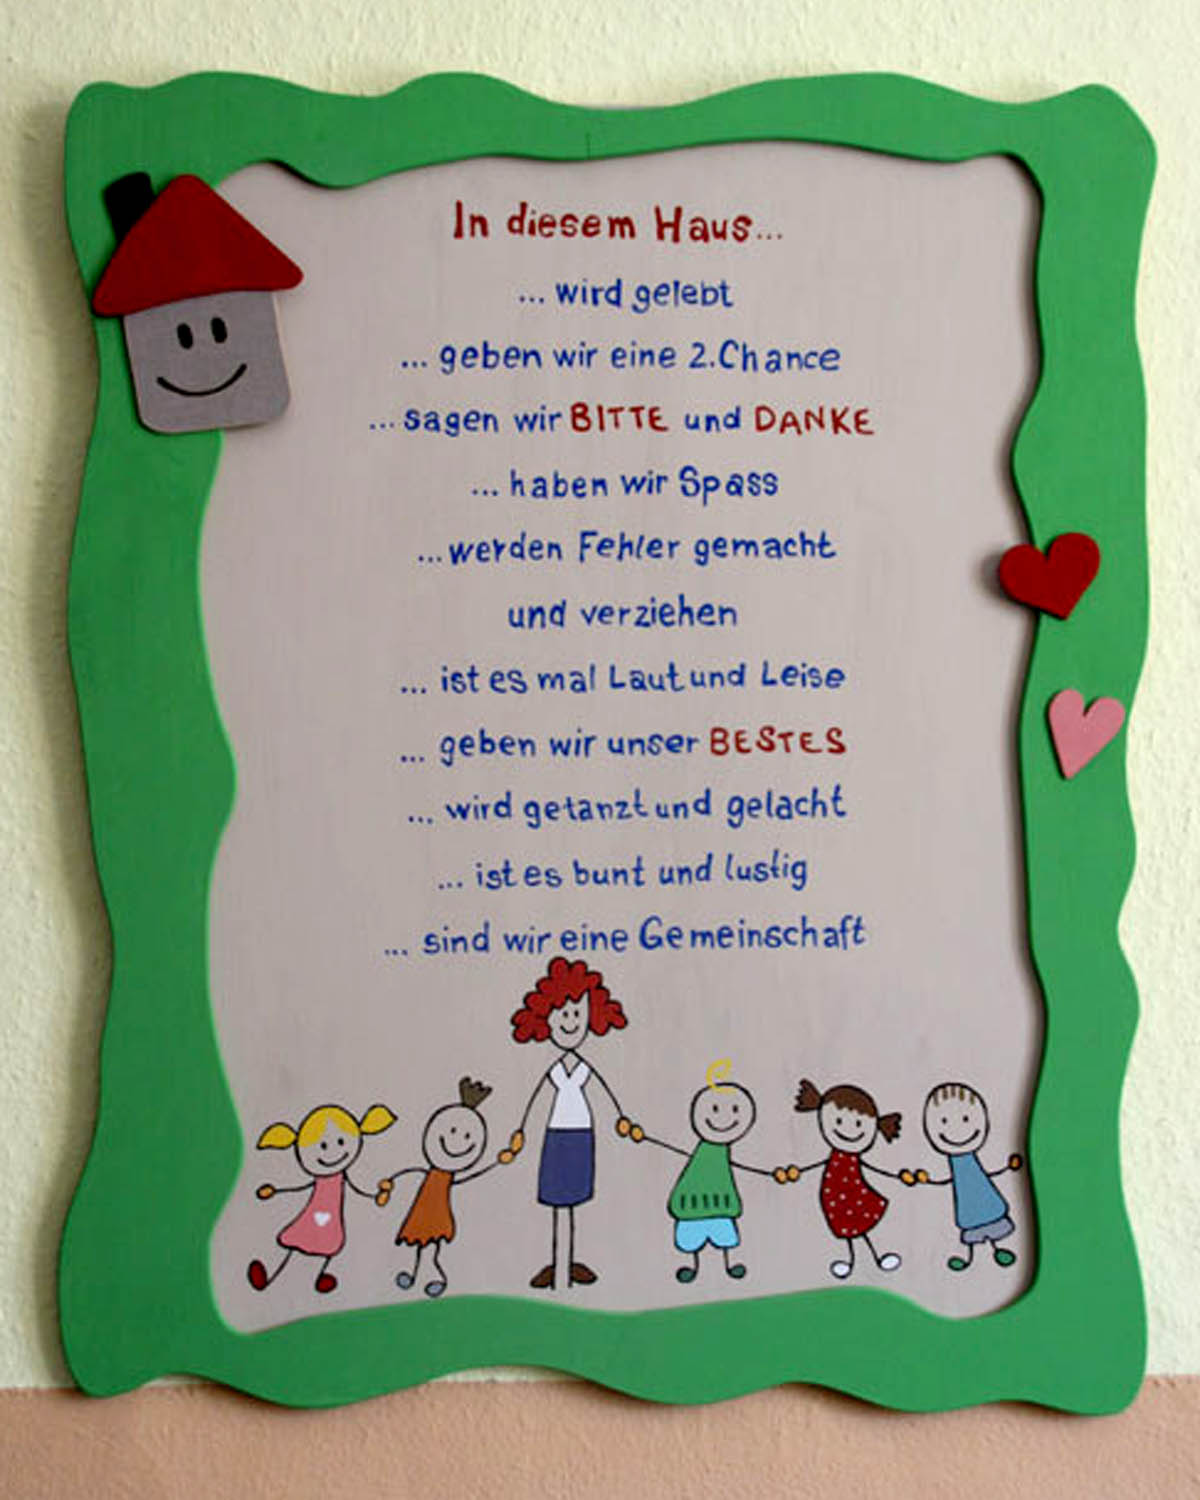 In diesem Haus...
... wird gelebt
... geben wir eine 2.Chance
... sagen wir BITTE und DANKE
... haben wir Spass
... werden Fehler gemacht
und verziehen
... ist es mal Laut und Leise
... geben wir unser BESTES
... wird getanzt und gelacht
... ist es bunt und lustig
... sind wir eine Gemeinschaft